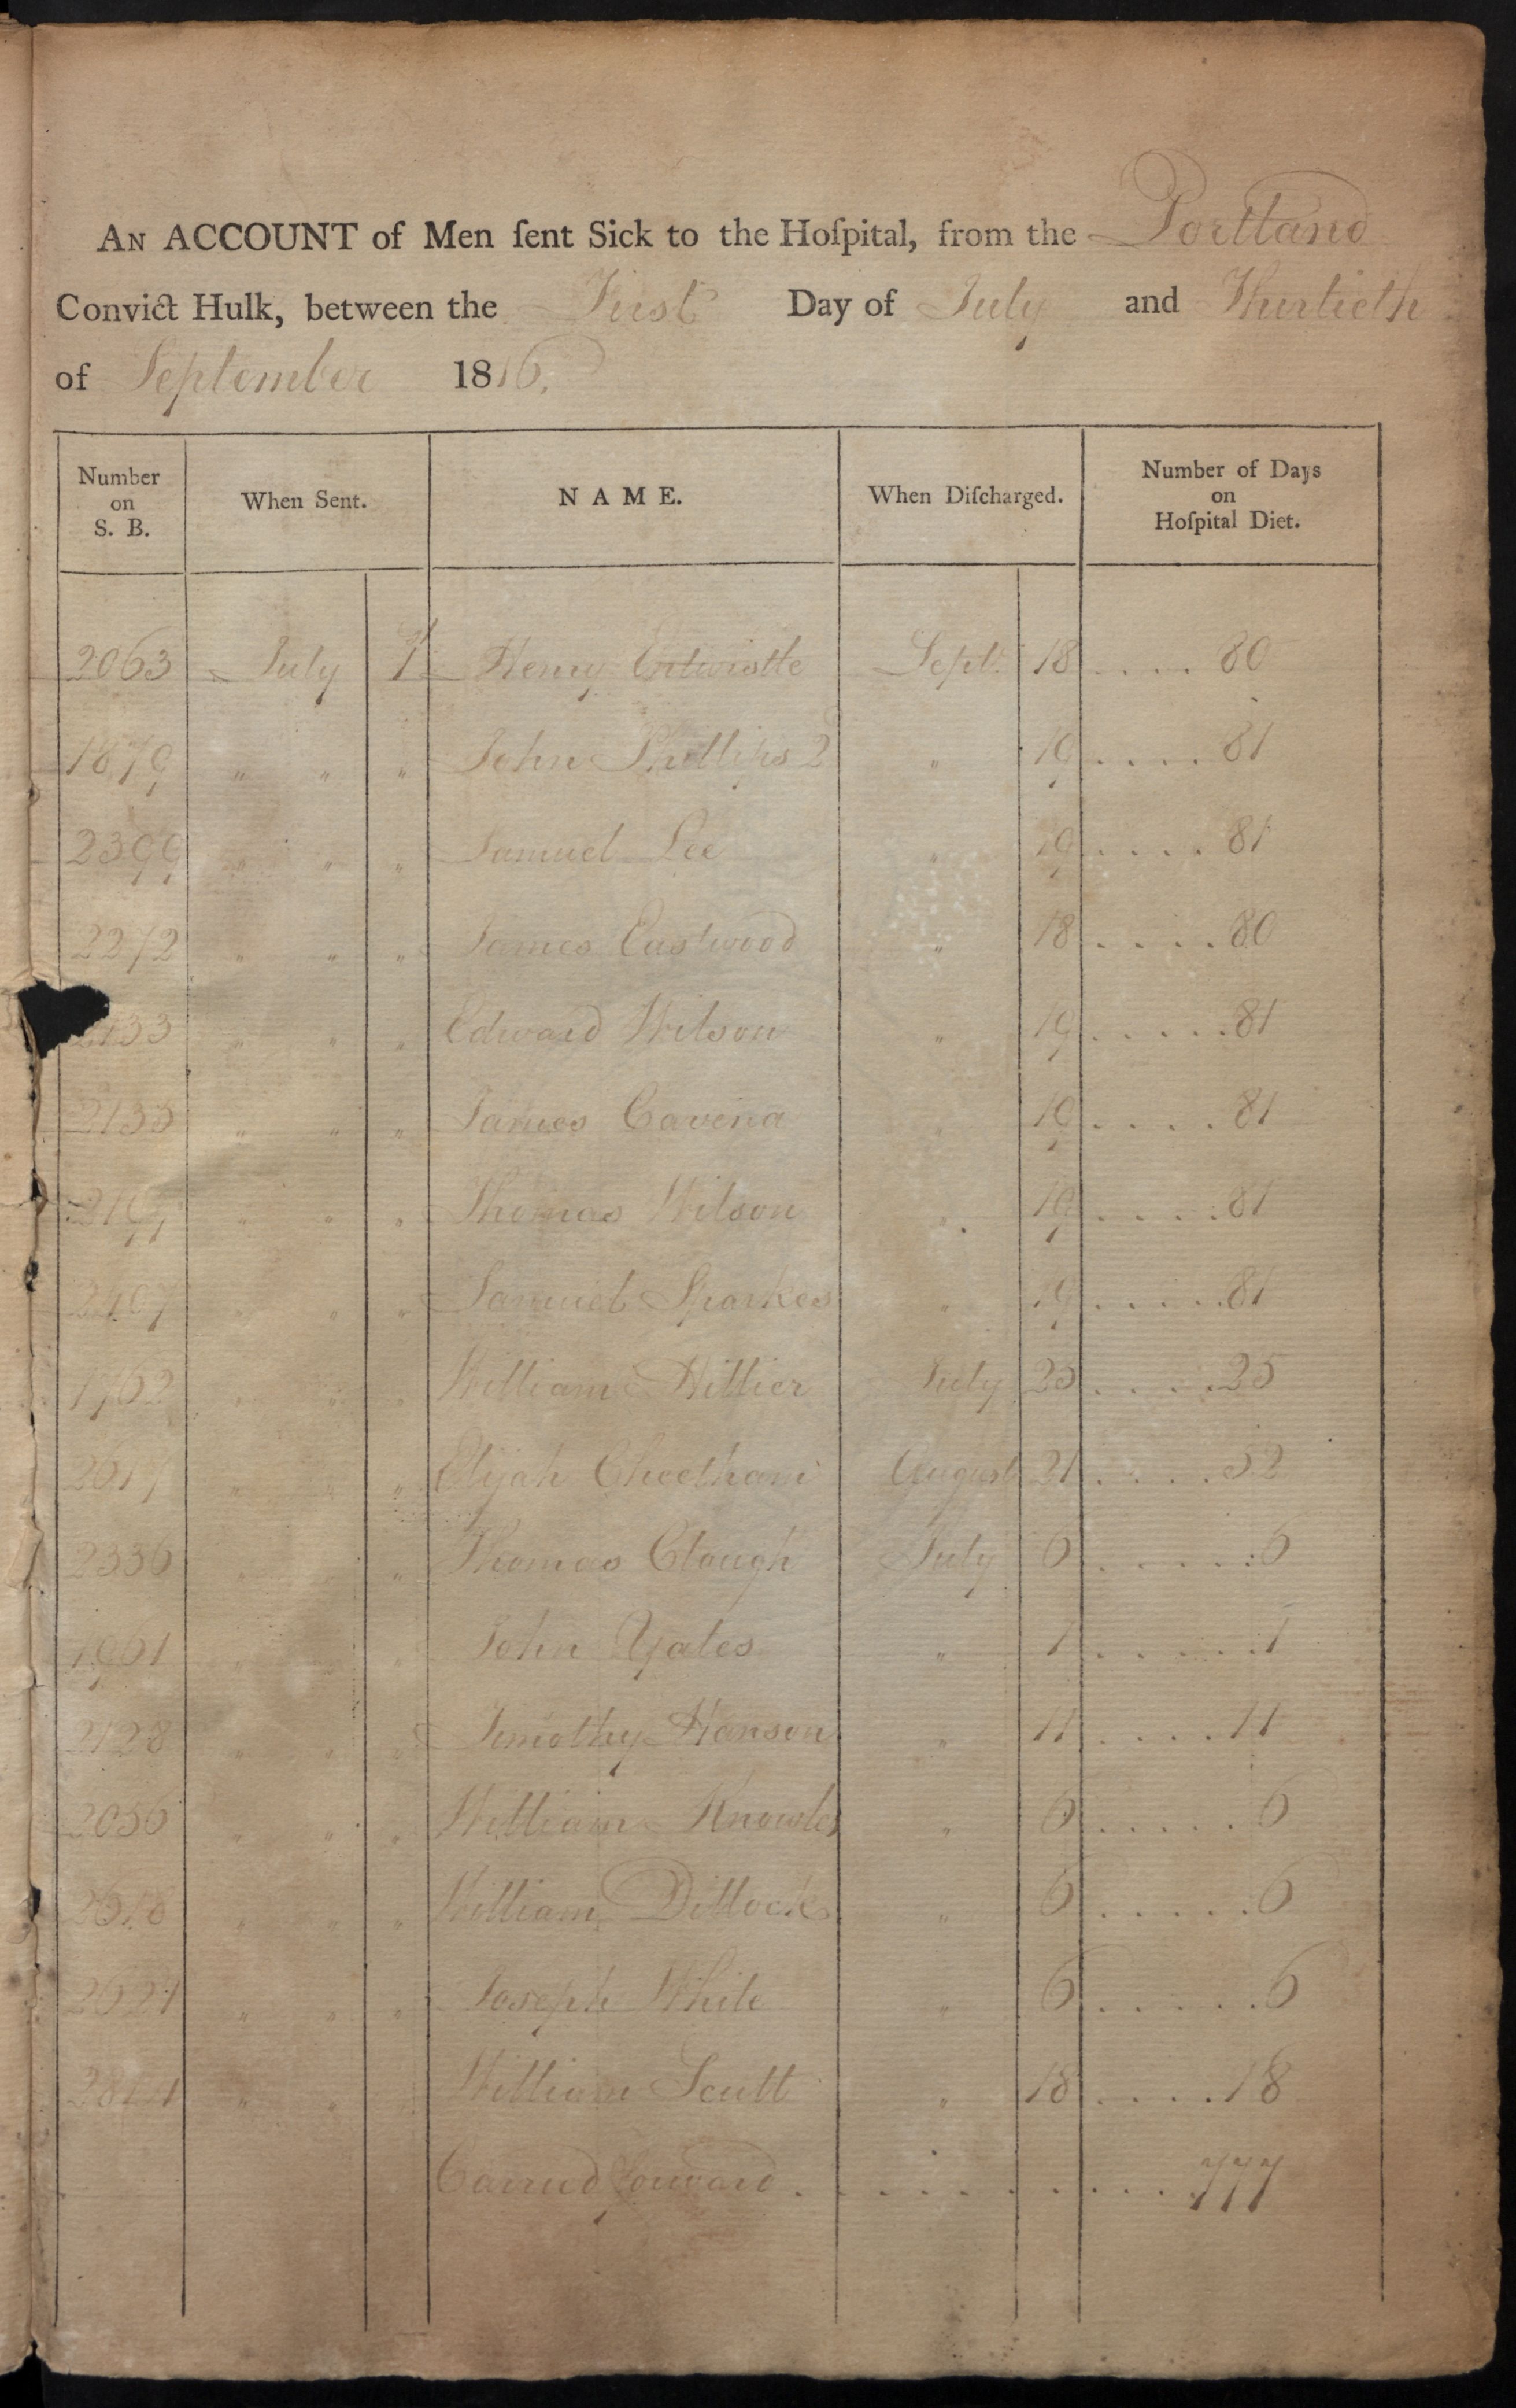 AN ACCOUNT of Men ſent Sick to the Hoſpital, from the Portland
Convict Hulk, between the First Day of July and Thirtieth
of September 1816.
Number on S. B. When Sent. NAME. When Diſcharged. Number of Days on Hoſpital Diet.
2063 July 1st Henry Entwistle Sept. 18 .... 80
1879 " " " John Phillips 2 " 19 .... 81
2399 " " " Samuel Lee " 19 .... 81
2272 " " " James Eastwood " 18 .... 80
2133 " " " Edward Wilson " 19 ..... 81
2135 " " " James Cavena " 19 .... 81
" " " Thomas Wilson " 19 .... 81
2407 " " " Samuel Sparkes " 19 ..... 81
1762 " " " William Hillier July 25 .... 25
2617 " " " Elijah Cheetham August 21 .... 52
2336 " " Thomas Clough July 6 ..... 6
1961 " " John Yates " 1 ..... 1
2128 " " " Timothy Hanson " 11 .... 11
2056 " " " William Knowles " 6 ..... 6
2618 " " " William Dillock " 6 ..... 6
2621 " " " Joseph White " 6 ..... 6
" " William Scutt " 18 .... 18
Carried forward .......... 777